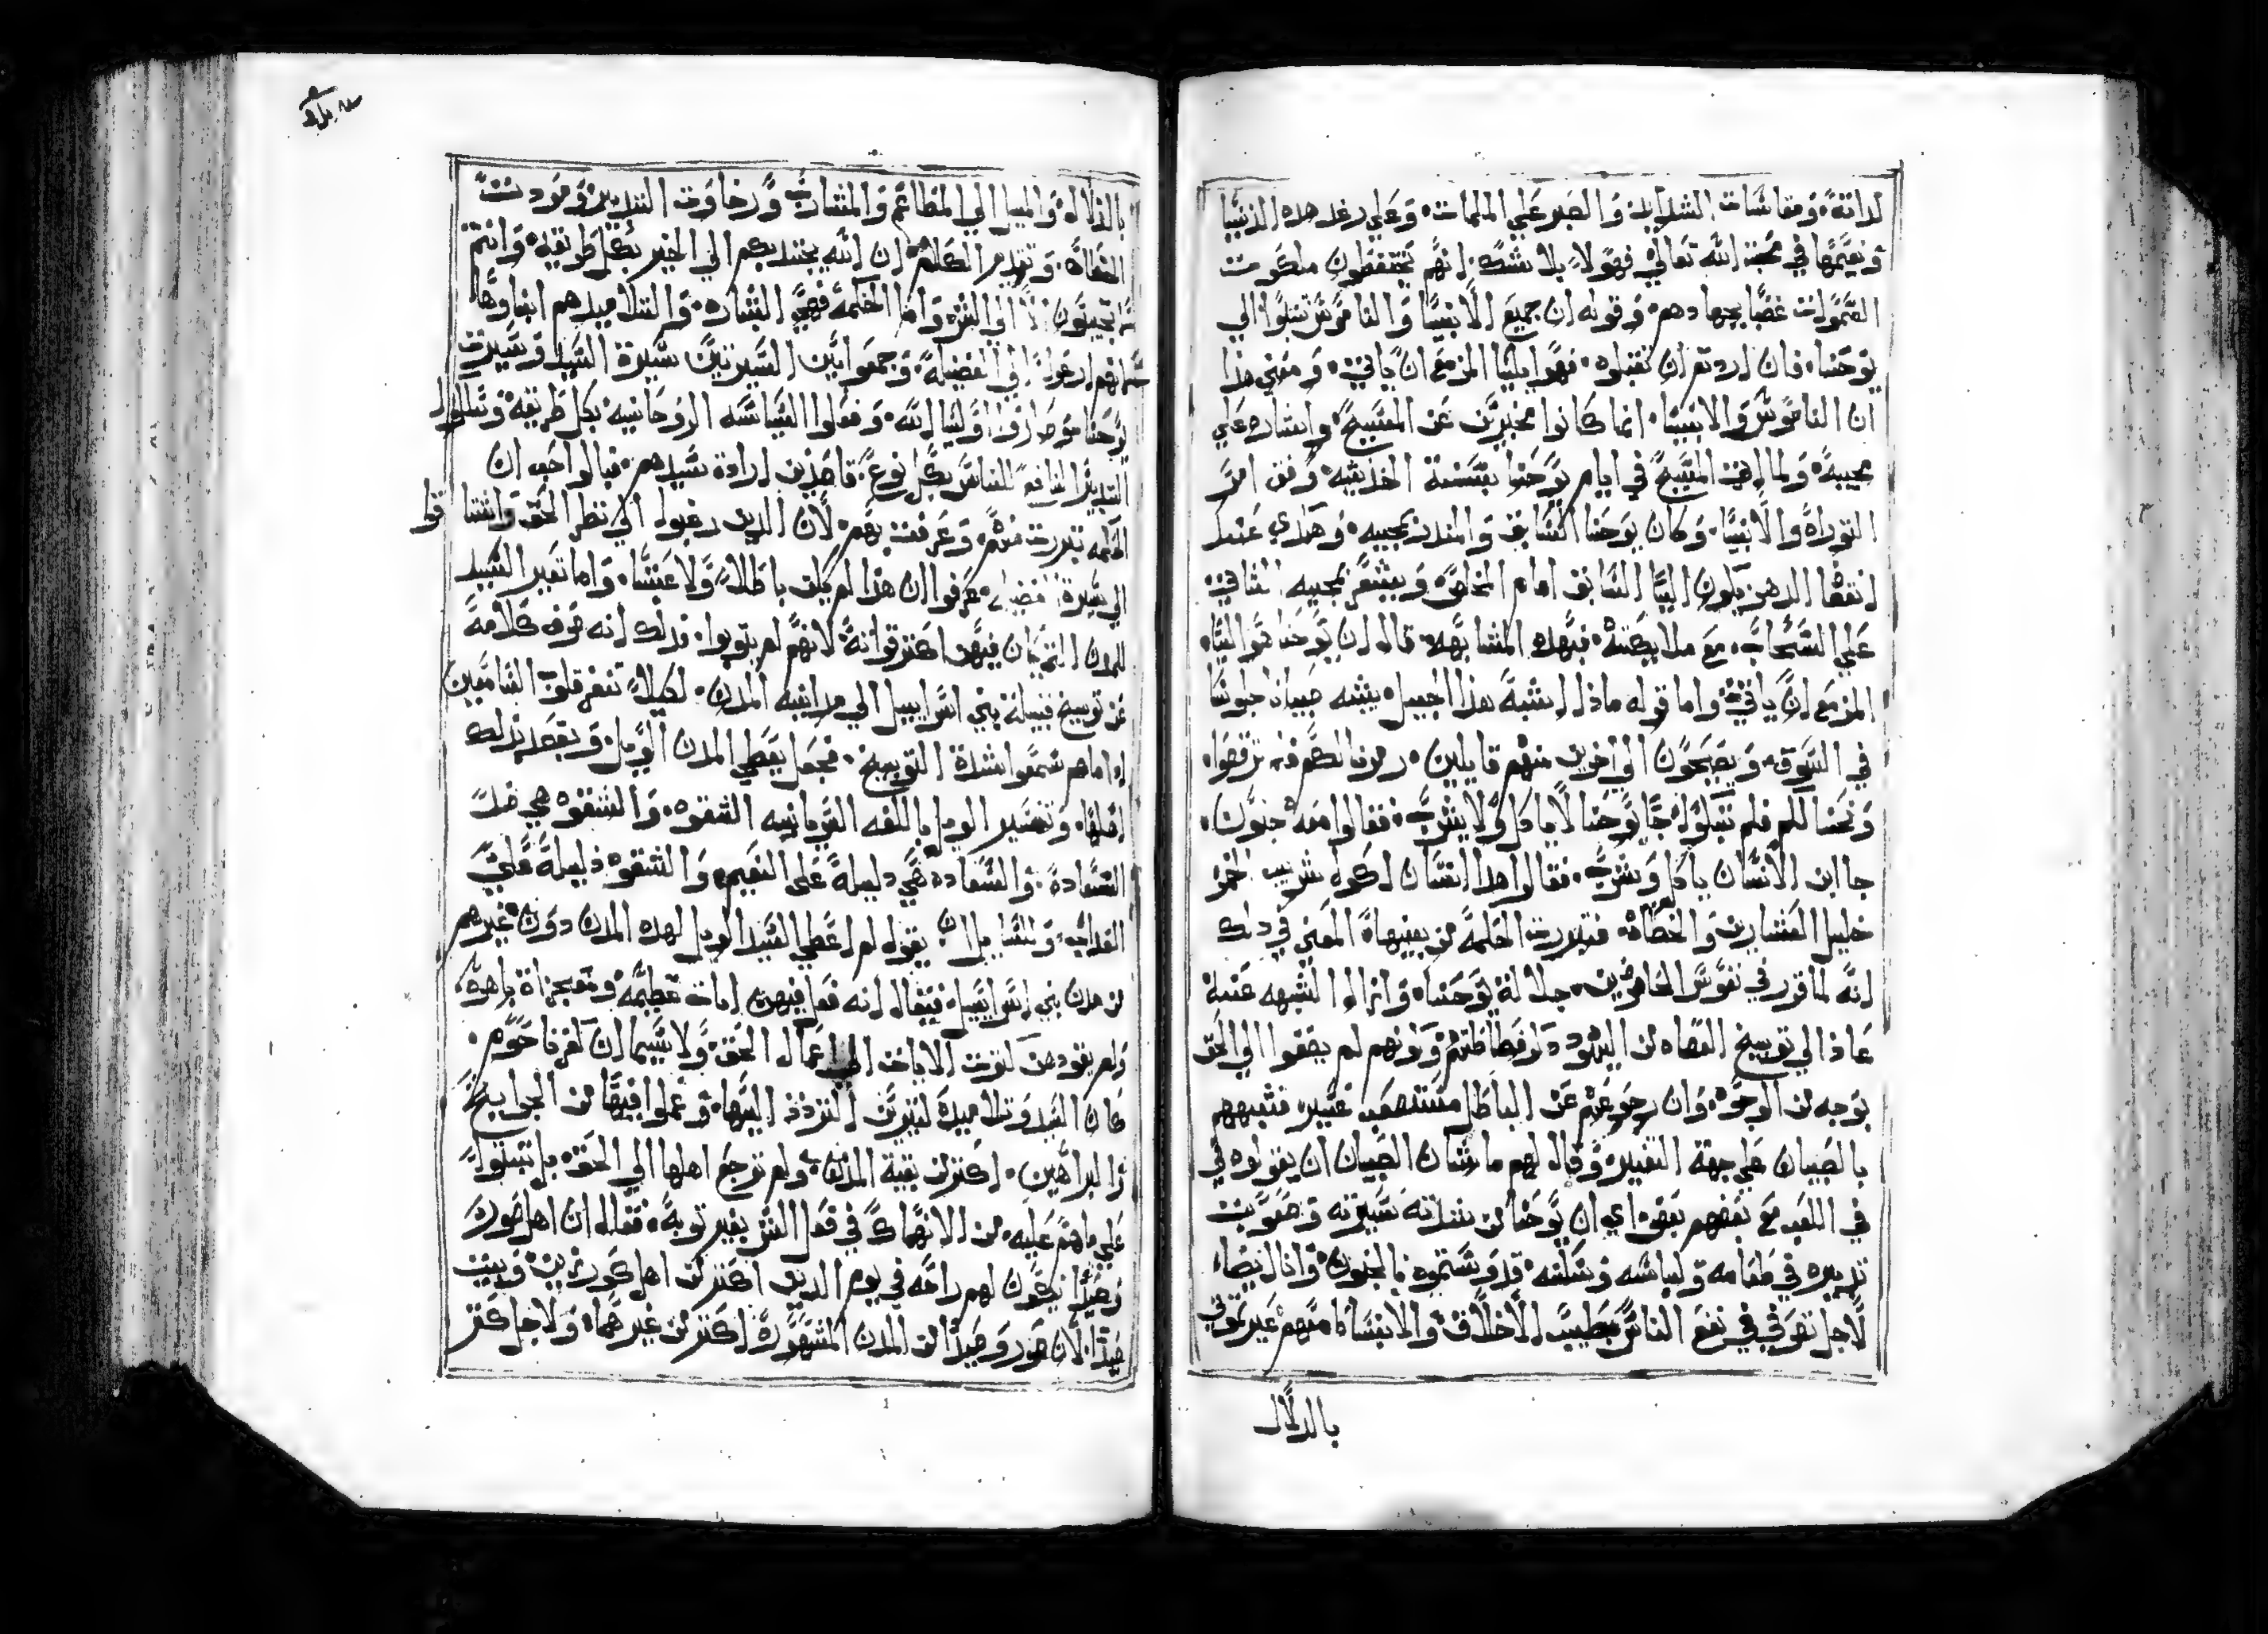 لداته ومقاسات الشدايد والصبر علي الملمات وعلي رغد هده الدنيا
ونعيمها في محبة الله تعالي فهولا بلا شك انهم يختطفون ملكوت
السموات غصبا بجهادهم وقوله ان جميع الانبيا والناموس تنبوا الي
يوحنا فان اردتم ان تقبلوه فهوا يليا المزمع ان ياتي ومعني هدا
ان الناموس والانبيا انما كانوا مخبرين عن المسيح واشاره علي
مجيه ولما المسيح في ايام يوحنا وفق امر
التوراه والانبيا وكان يوحنا السابق والمندر بمجيه وهكدي عند
انقضا الدهر يكون اليا السابق امام المخلص ويبشر بمجيه التاني
علي السحاب مع ملايكته فبهده المشابهه قال ان يوحنا هوا اليا
المزمع ان ياتي واما قوله ماذا اشبه هذا الجيل يشبه صبيانا جلوسا
في السوق ويصيحون الي اخرين منهم قايلين زمرنا لكم فلم ترقصوا
ونحنا لكم فلم تبكوا جا يوحنا لا ياكل ولا يشرب فقالوا معه جنون
جا ابن الانسان ياكل ويشرب فقالوا هدا انسان اكول شريب الخمر
خليل العشارين والخطاه فتبررت الحكمه من بنيها المعني في دلك
انه لما قرر في نفوس الحاضرين جلالة يوحنا وازال الشبهه عنه
عاد الي توبيخ العصاه من اليهود وكونهم لم يصغوا الي الحق
بوجه من الوجوه وان رجوعهم عن الباطل مستصعب عسير فشبههم
بالصبيان علي جهة التعيير وقال لهم ما شان الصبيان ان يقولوه في
في اللعب مع بعضهم بعض اي ان يوحنا من شدة سيرته وصعوبت
تدبيره في طعامه ولباسه وسكنه قد وسمتموه بالجنون وانا ايضا
لاجل تصرفي في نفع الناس بطيب الاخلاق والاستيناس
بالدلال
بالدلاله والميل الي المطاعم والمشارب ورخاوت التدبير ومودت
الخطاه وتقدير الكلام ان الله يجتدبكم الي الخير بكل طريقه وانتم
لا تجيبون الا الي الشر واما الحكمه فهي البشاره والتلاميدهم ابناوها
الي الفضيله وجمعوا بين السيرتين سيرة السيد وسيرت
يوحنا وصاروا اوليا لله وفعلوا السياسه الروحانيه بكل طريقه وسلكوا
التدبير النافع للناس بكل نوع قاصدين ارادة سيدهم فبالواجب ان
الحكمه تبررت منهم وعرفت بهم لان الدين رغبوا الي نظر الحق واشتاقوا
الي سيرة الفضيله عرفوا ان هذا لم يكن باطلا ولا عبثا واما تعير السيد
للمدن التي كان فيهن اكتر قواته لانهم لم يتوبوا فدلك انه صرف كلامه
عن توبيخ قبيلة بني اسراييل الي مدانيه المدن لكيلا تنفر قلوب السامعين
اداما هم سمعوا شدة التوبيخ فجعل يعطي المدن الويل ويقصد بدلك
اهلها وتفسير الويل باللغه السريانيه الشقوه والشقوه هي ضد
السعاده والسعاده هي دليله علي النعيم والشقوه دليله علي
العداب وللسايل ان يقول لم اعطي السيد الويل لهده المدن دون غيرهم
من مدن بني اسراييل فيقال انه فعل فيهن ايات عظيمه ومعجزاة باهره
ولم يعود من الايات الي اعمال الحق ولا سيما ان كفرناحوم
كان السيد وتلاميده كتيرين التردد اليها وعملوا فيها من العجايب
والبراهين اكتر من بقية المدن ولم ترجع اهلها الي الحق بل تبتوا
علي ما هم عليه من الانهماك في فعل الشر بغير توبه فقال ان اهل صور
وصيدا يكون لهم راحه في يوم الدين اكتر من اهل كورزين وبيت
صيدا لان صور وصيدا من المدن المشهوره اكتر من غيرهما ولاجل كتر